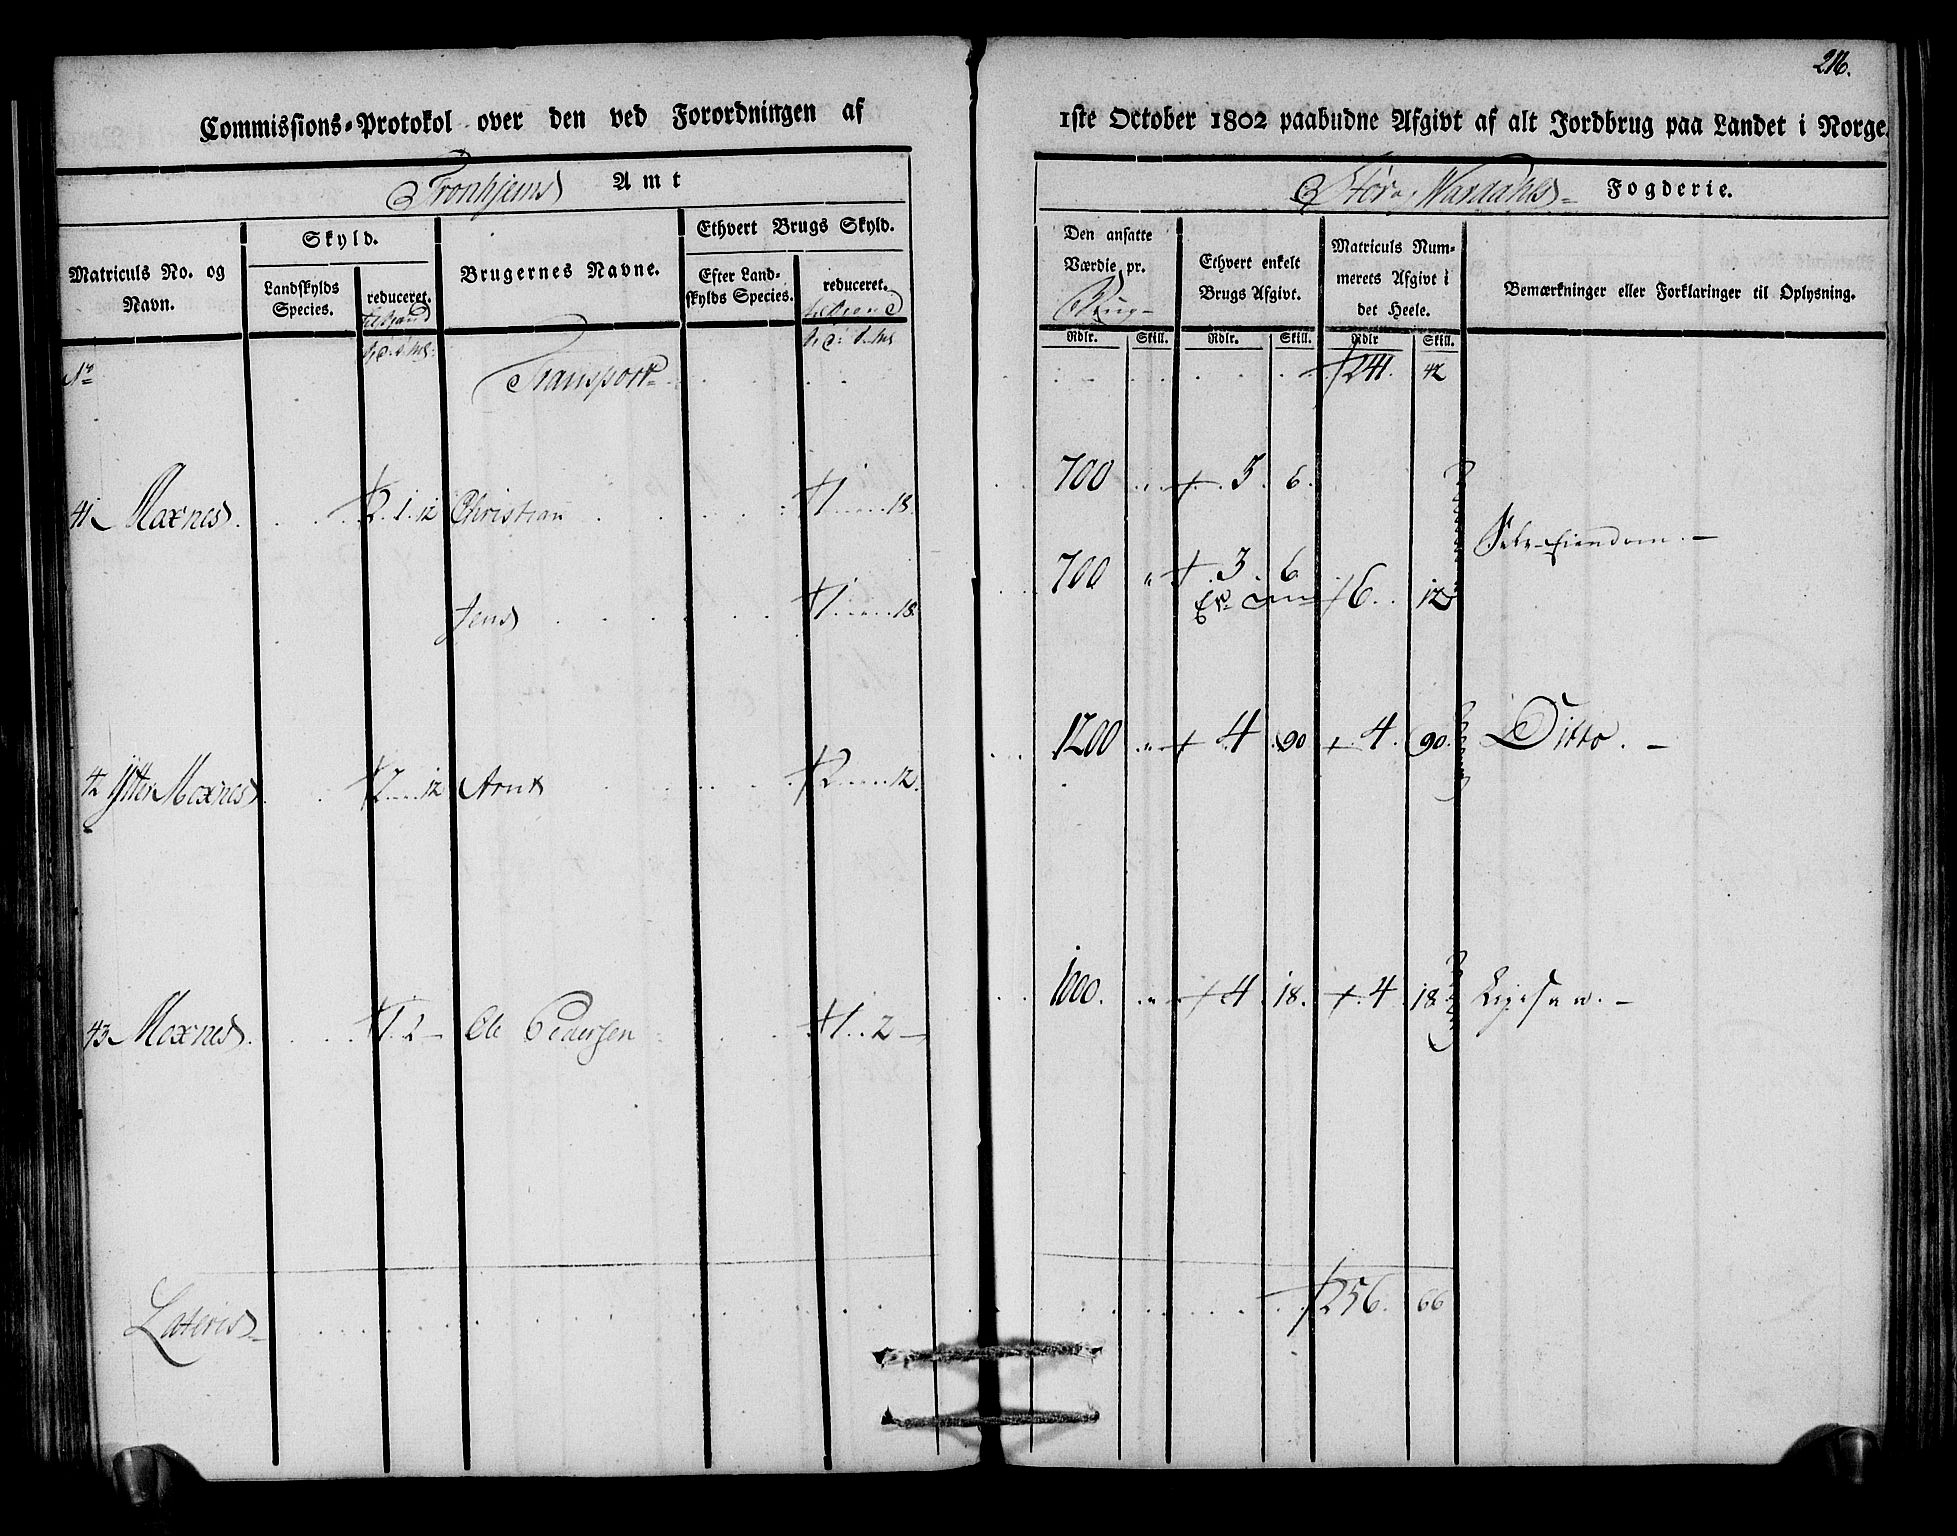 216.
Commissions-Protokol over den ved Forordningen af 1ste October 1802 paabudne Afgivt af alt Jordbrug paa Landet i Norge.
Tronhjems Amt
Stør og Værdahls Fogderie.
Matriculs No. og Navn.
Skyld.
Landskylds Species.
reduceret.
Brugernes Navne.
Ethvert Brugs Skyld.
Efter Landskylds Species.
reduceret.
Den ansatte Værdie pr. Brug
Ethvert enkelt Brugs Afgivt.
Matriculs Nummerets Afgivt i det Heele.
Bemærkninger eller Forklaringer til Oplysning.
Rdlr. Skill. Rdlr. Skill. Rdlr Skill.
No Transport 241. 42
41 Moxnes 2. 1. 12 Christian 1 18. 700 " 3. 6. Selv-Eiendom.
Jens 1 18. 700 " 3. 6 6. 12
42 Ytter Moxnes 2 12 Arnt 2 12. 1200 " 4 90 4. 90. Ditto.
43 Moxnes 1. 2 Ole Pedersen 1. 2 1000. " 4. 18. 4. 18. Ligesaa.
Lateris 256. 66